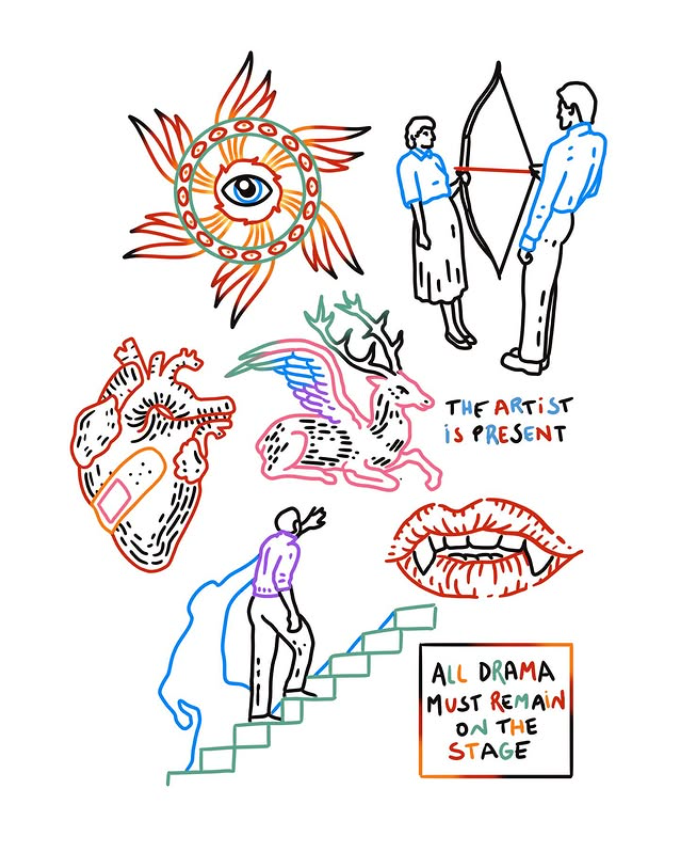 THE ARTiST
iS PRESENT
ALL DRAMA
MUST REMAiN
ON THE
STAGE